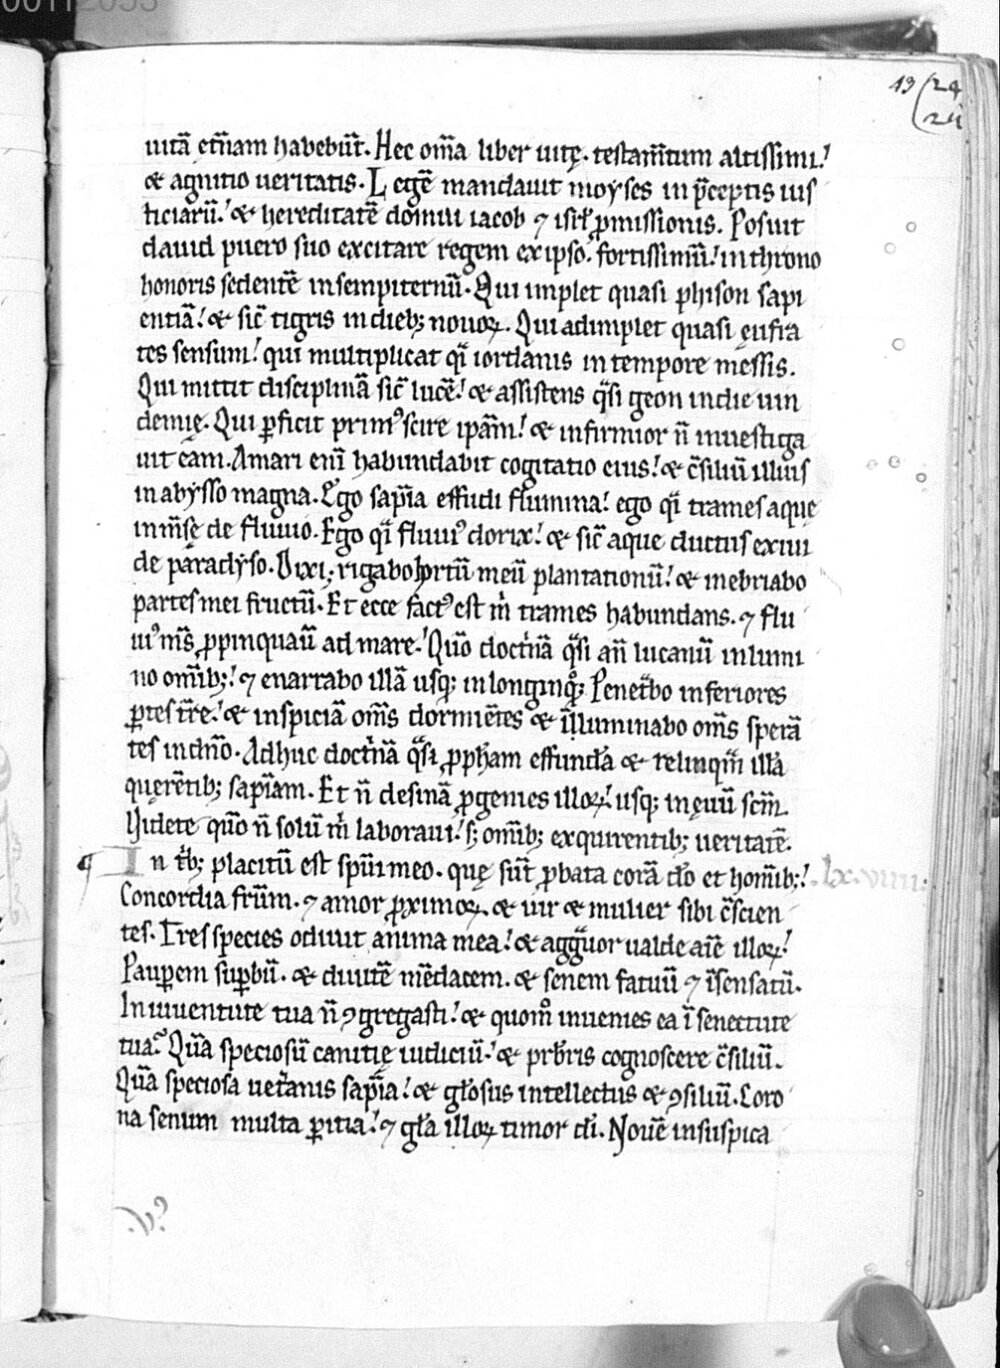 00112053
13 (24
24
uitā et̄nam habebūt. Hec om̄a liber uitę. testam̄tum altissimi!
& agnitio ueritatis. Legē mandauit moyses in p̄ceptis ius
ticiarū! & hereditatē domui iacob ⁊ isrl̄ ꝓmissionis. Posuit
dauid puero suo excitare regem ex ipso! fortissimū! in throno
honoris sedentē in sempiternū. Qui implet quasi phison sapi
entiā! & sic̄ tigris in dieb; nouoꝝ. Qui adimplet quasi eufra
tes sensum! qui multiplicat q̄i iordanis in tempore messis.
Qui mittit disciplinā sic̄ lucē! & assistens q̄si geon in die uin
demię. Qui ꝑficit primꝰ scire ipām! & infirmior n̄ inuestiga
uit eam. A mari eni̅ habundabit cogitatio eius! & c̄siliū illius
in abysso magna. Ego sapīa effudi flumina! ego q̄i trames aque
inm̄sę de fluuio. Ego q̄i fluuiꝰ dorix! & sic̄ aque ductus exiui
de paradyso. Dixi; rigabo hortū meū plantationū! & inebriabo
partes mei fructū. Et ecce factꝰ est m̄ trames habundans. ⁊ flu
uiꝰ m̄s ꝓpinquauīt ad mare! Quō doct̄nā q̄si an̄ lucanū inlumi
no om̄ib;! ⁊ enarrabo illā usq; in longinq̊; Penet̄bo inferiores
ꝑtes t̄re! & inspiciā om̄s dormiētes & illuminabo om̄s sperā
tes in dn̄o. Adhuc doct̄nā q̄si ꝓpham effundā & relinquā illā
querētib; sapīam. Et n̄ desinā ꝓgenies illoꝝ! usq; in ęuū scm̄.
Videte quō n̄ solū m̄ laboraui! s; om̄ib; exquirentib; ueritatē.
¶ In trib; placitū est spūi meo. quę sūt ꝓbata corā dō et homīb;! .lx.viiii.
Concordia frūm. ⁊ amor ꝓximoꝝ. & uir & mulier sibi c̄scien
tes. Tres species odiuit anima mea! & aggͣuor ualde aīe illoꝝ!
Pauꝑem suꝑbū. & diuitē mēdacem. & senem fatuū ⁊ īsensatū.
In iuuentute tua n̄ ꝯgregasti! & quom̊ inuenies ea ī senectute
tua? Quā speciosū canitię iudiciū! & prb̄ris cognoscere c̄siliū.
Quā speciosa uet̄anis sapīa! & glōsus intellectus & ꝯsiliū. Coro
na senum multa ꝑitia! ⁊ glā illoꝝ timor di̅. Nouē insuspica
.V.